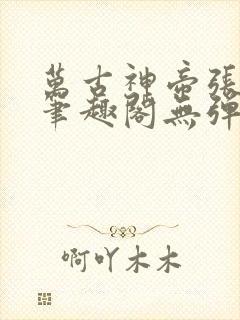 萬古神帝張
筆趣閣無彈
啊吖木木